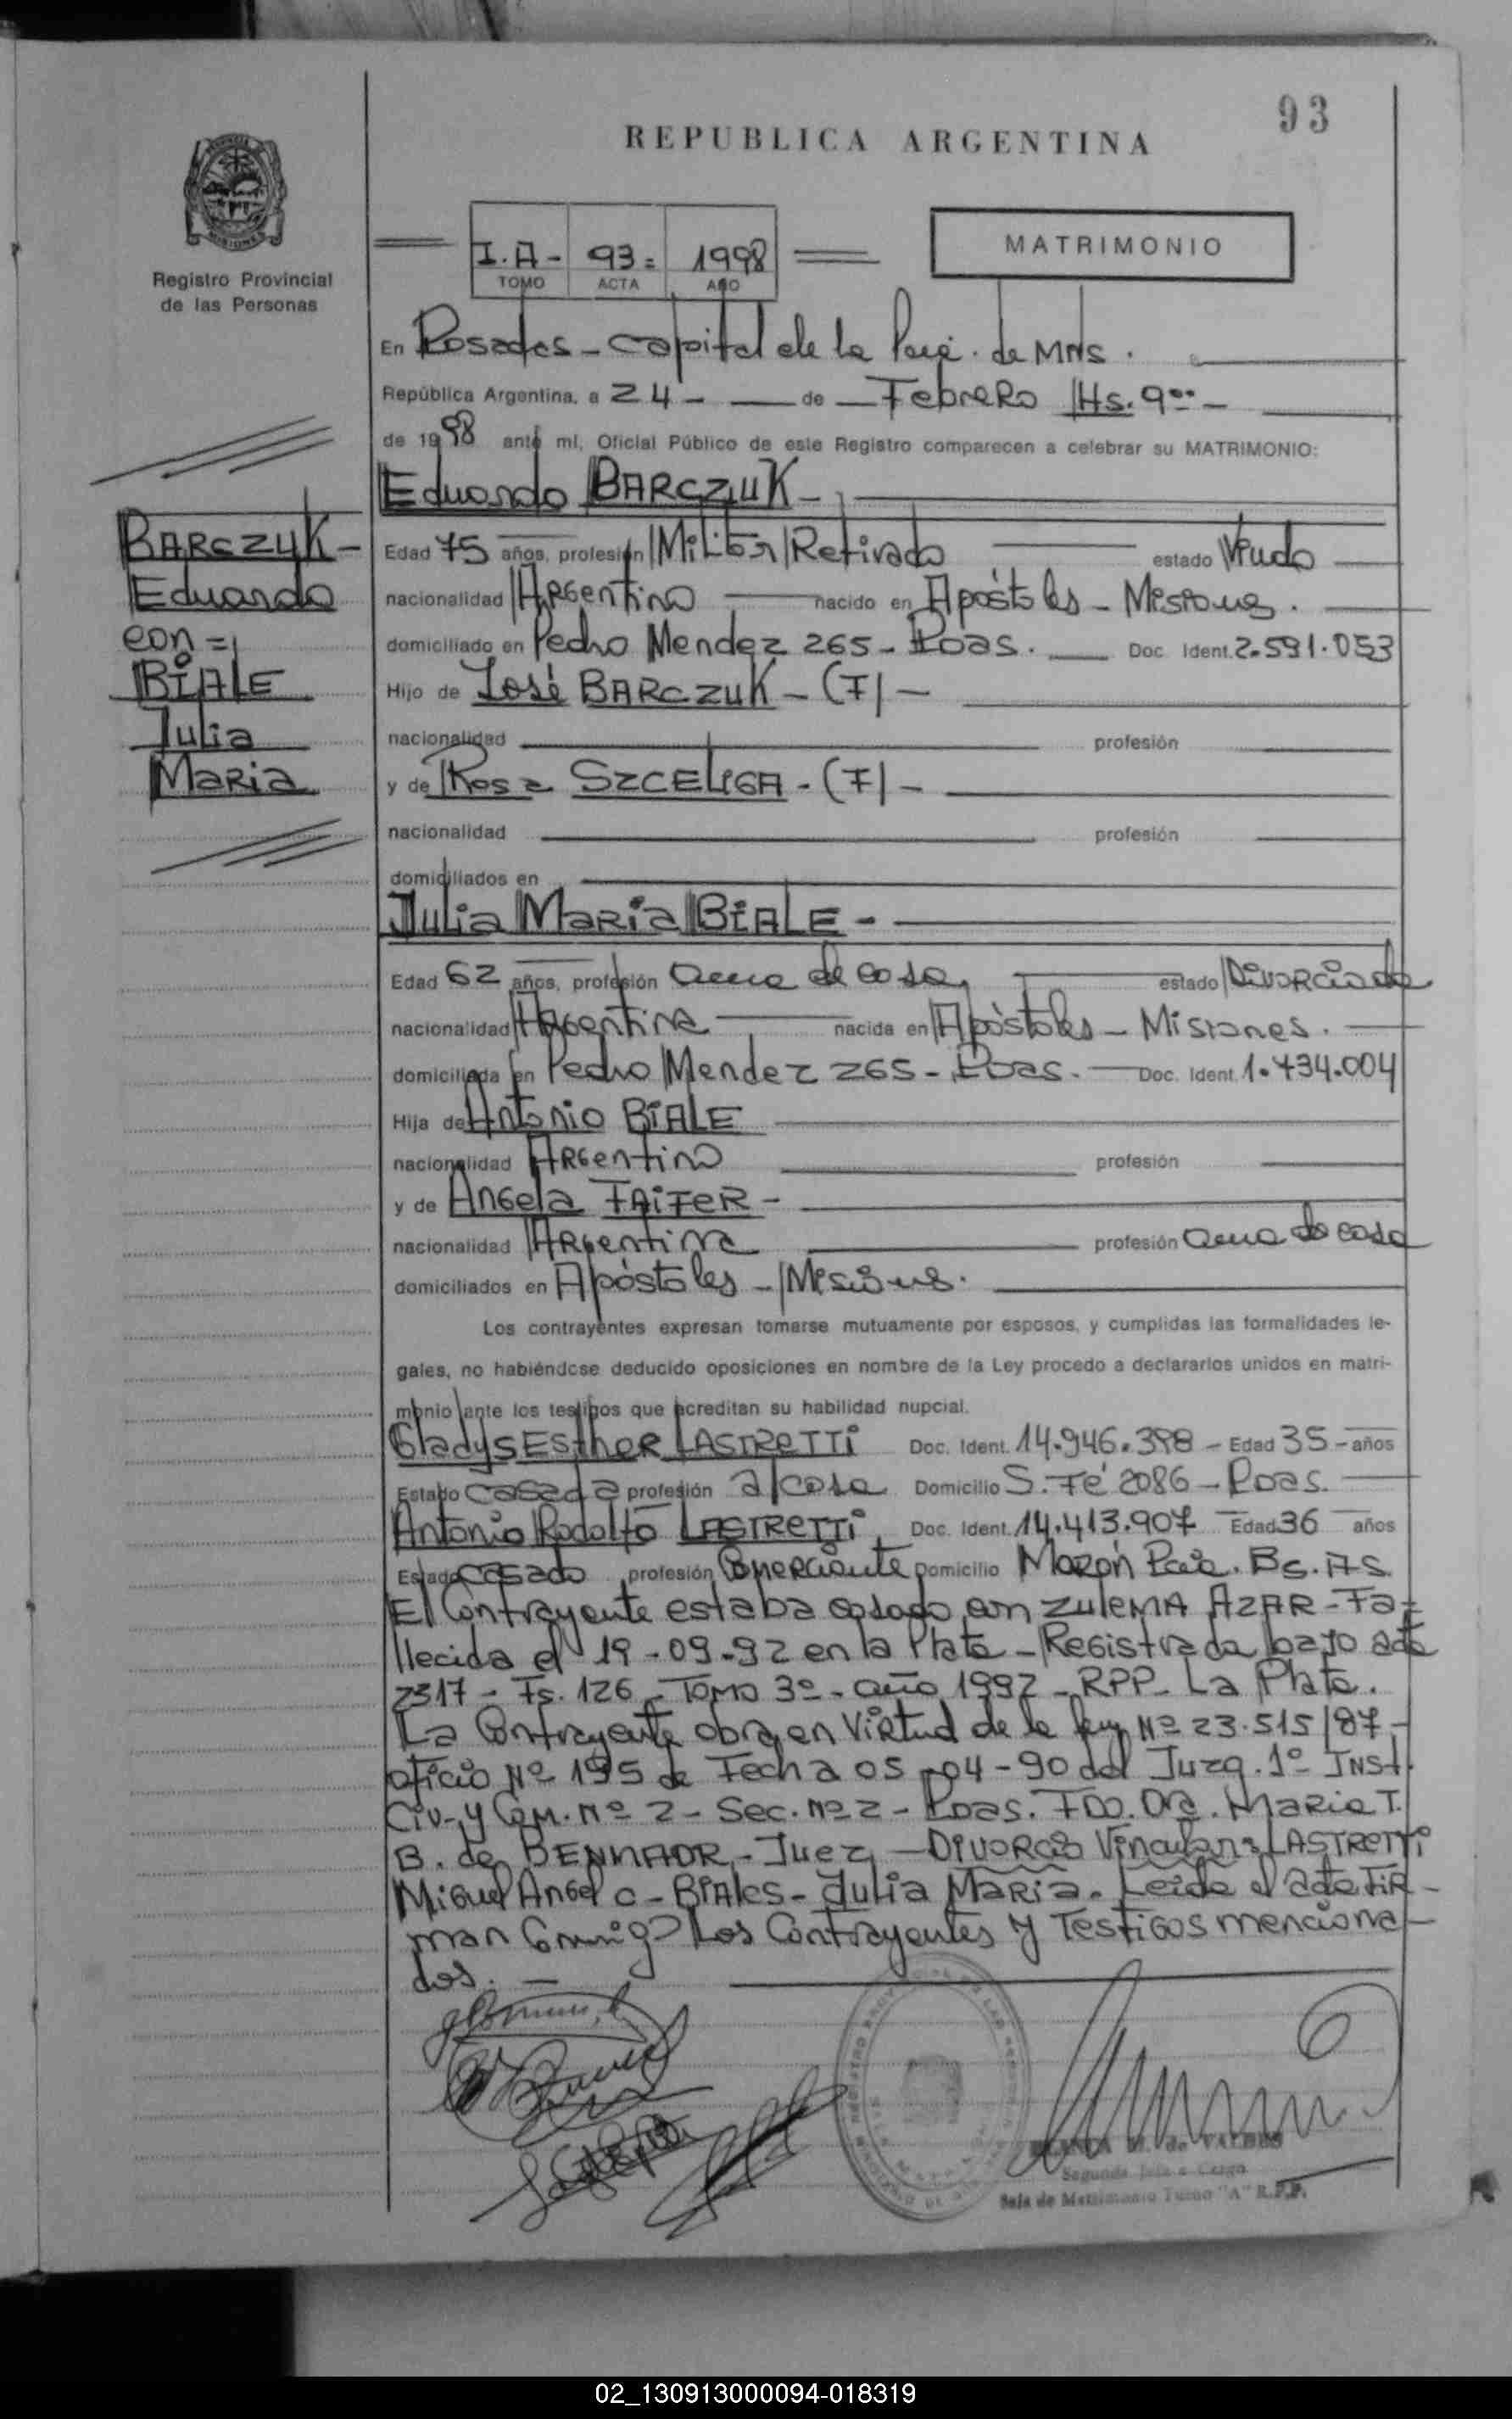 93
REPUBLICA ARGENTINA
Registro Provincial
de las Personas
I.A- 93= 1998
TOMO ACTA AÑO
MATRIMONIO
En Posadas - Capital de la Pcia. de Mns.
República Argentina, a 24 - de Febrero Hs. 9
de 1998 ante mí, Oficial Público de este Registro comparecen a celebrar su MATRIMONIO:
Eduardo BARCZUK -
BARCZUK -
Eduardo
con =
BIALE
Julia
Maria
Edad 75 años, profesión Militar Retirado estado Viudo
nacionalidad Argentino nacido en Apóstoles - Misiones.
domiciliado en Pedro Mendez 265 - Pdas. Doc. Ident. 2.591.053
Hijo de José BARCZUK - (F) -
nacionalidad profesión
y de Rosa SZCELIGA - (F) -
nacionalidad profesión
domiciliados en
Julia Maria BIALE -
Edad 62 años, profesión ama de casa estado Divorciada
nacionalidad Argentina nacida en Apóstoles - Misiones.
domiciliada en Pedro Mendez 265 - Pdas. - Doc. Ident. 1.734.004
Hija de Antonio BIALE
nacionalidad Argentino profesión
y de Angela FAIFER -
nacionalidad Argentina profesión ama de casa
domiciliados en Apóstoles - Misiones.
Los contrayentes expresan tomarse mutuamente por esposos, y cumplidas las formalidades le-
gales, no habiéndose deducido oposiciones en nombre de la Ley procedo a declararlos unidos en matri-
monio ante los testigos que acreditan su habilidad nupcial.
Gladys Esther LASTRETTI Doc. Ident. 14.946.398 - Edad 35 - años
Estado casada profesión a/casa Domicilio S. Fé 2086 - Pdas.
Antonio Rodolfo LASTRETTI Doc. Ident. 14.413.907 Edad 36 años
Estado casado profesión Comerciante Domicilio Morón Pcia. Bs. As.
El Contrayente estaba casado con Zulema AZAR - Fa-
llecida el 19-09-92 en la Plata - Registrada bajo acta
2317 - Fs. 126 - Tomo 3º - año 1992 - RPP - La Plata.
La Contrayente obra en Virtud de la ley Nº 23.515/87 -
oficio Nº 195 de Fecha 05-04-90 del Juzg. 1º Inst.
Civ. y Com. Nº 2 - Sec. Nº 2 - Pdas. FDO. Dra. Maria T.
B. de - Juez - Divorcio Vincular: LASTRETTI
Miguel Angel c - Biales - Julia Maria. Leida el acta Fir-
man Conmigo Los Contrayentes y Testigos menciona-
dos. -
BLANCA de VALDES
Segunda Jefe a Cargo
Sala de Matrimonio Turno "A" R.P.P.
02_130913000094-018319